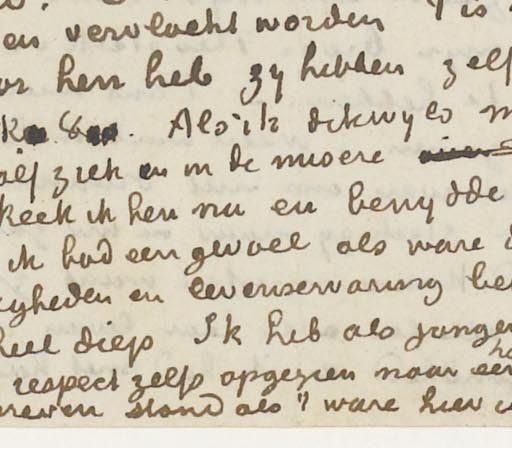 en vervloekt worden
hen heb zij hebben zelf
Als ik dikwijls
zelf ziek en in de misere
keek ik hen na en benijdde
ik had een gevoel als ware
igheden en levenservaring be
heel diep Ik heb als jonger
respect zelfs opgezien naar een
stond als 't ware hier